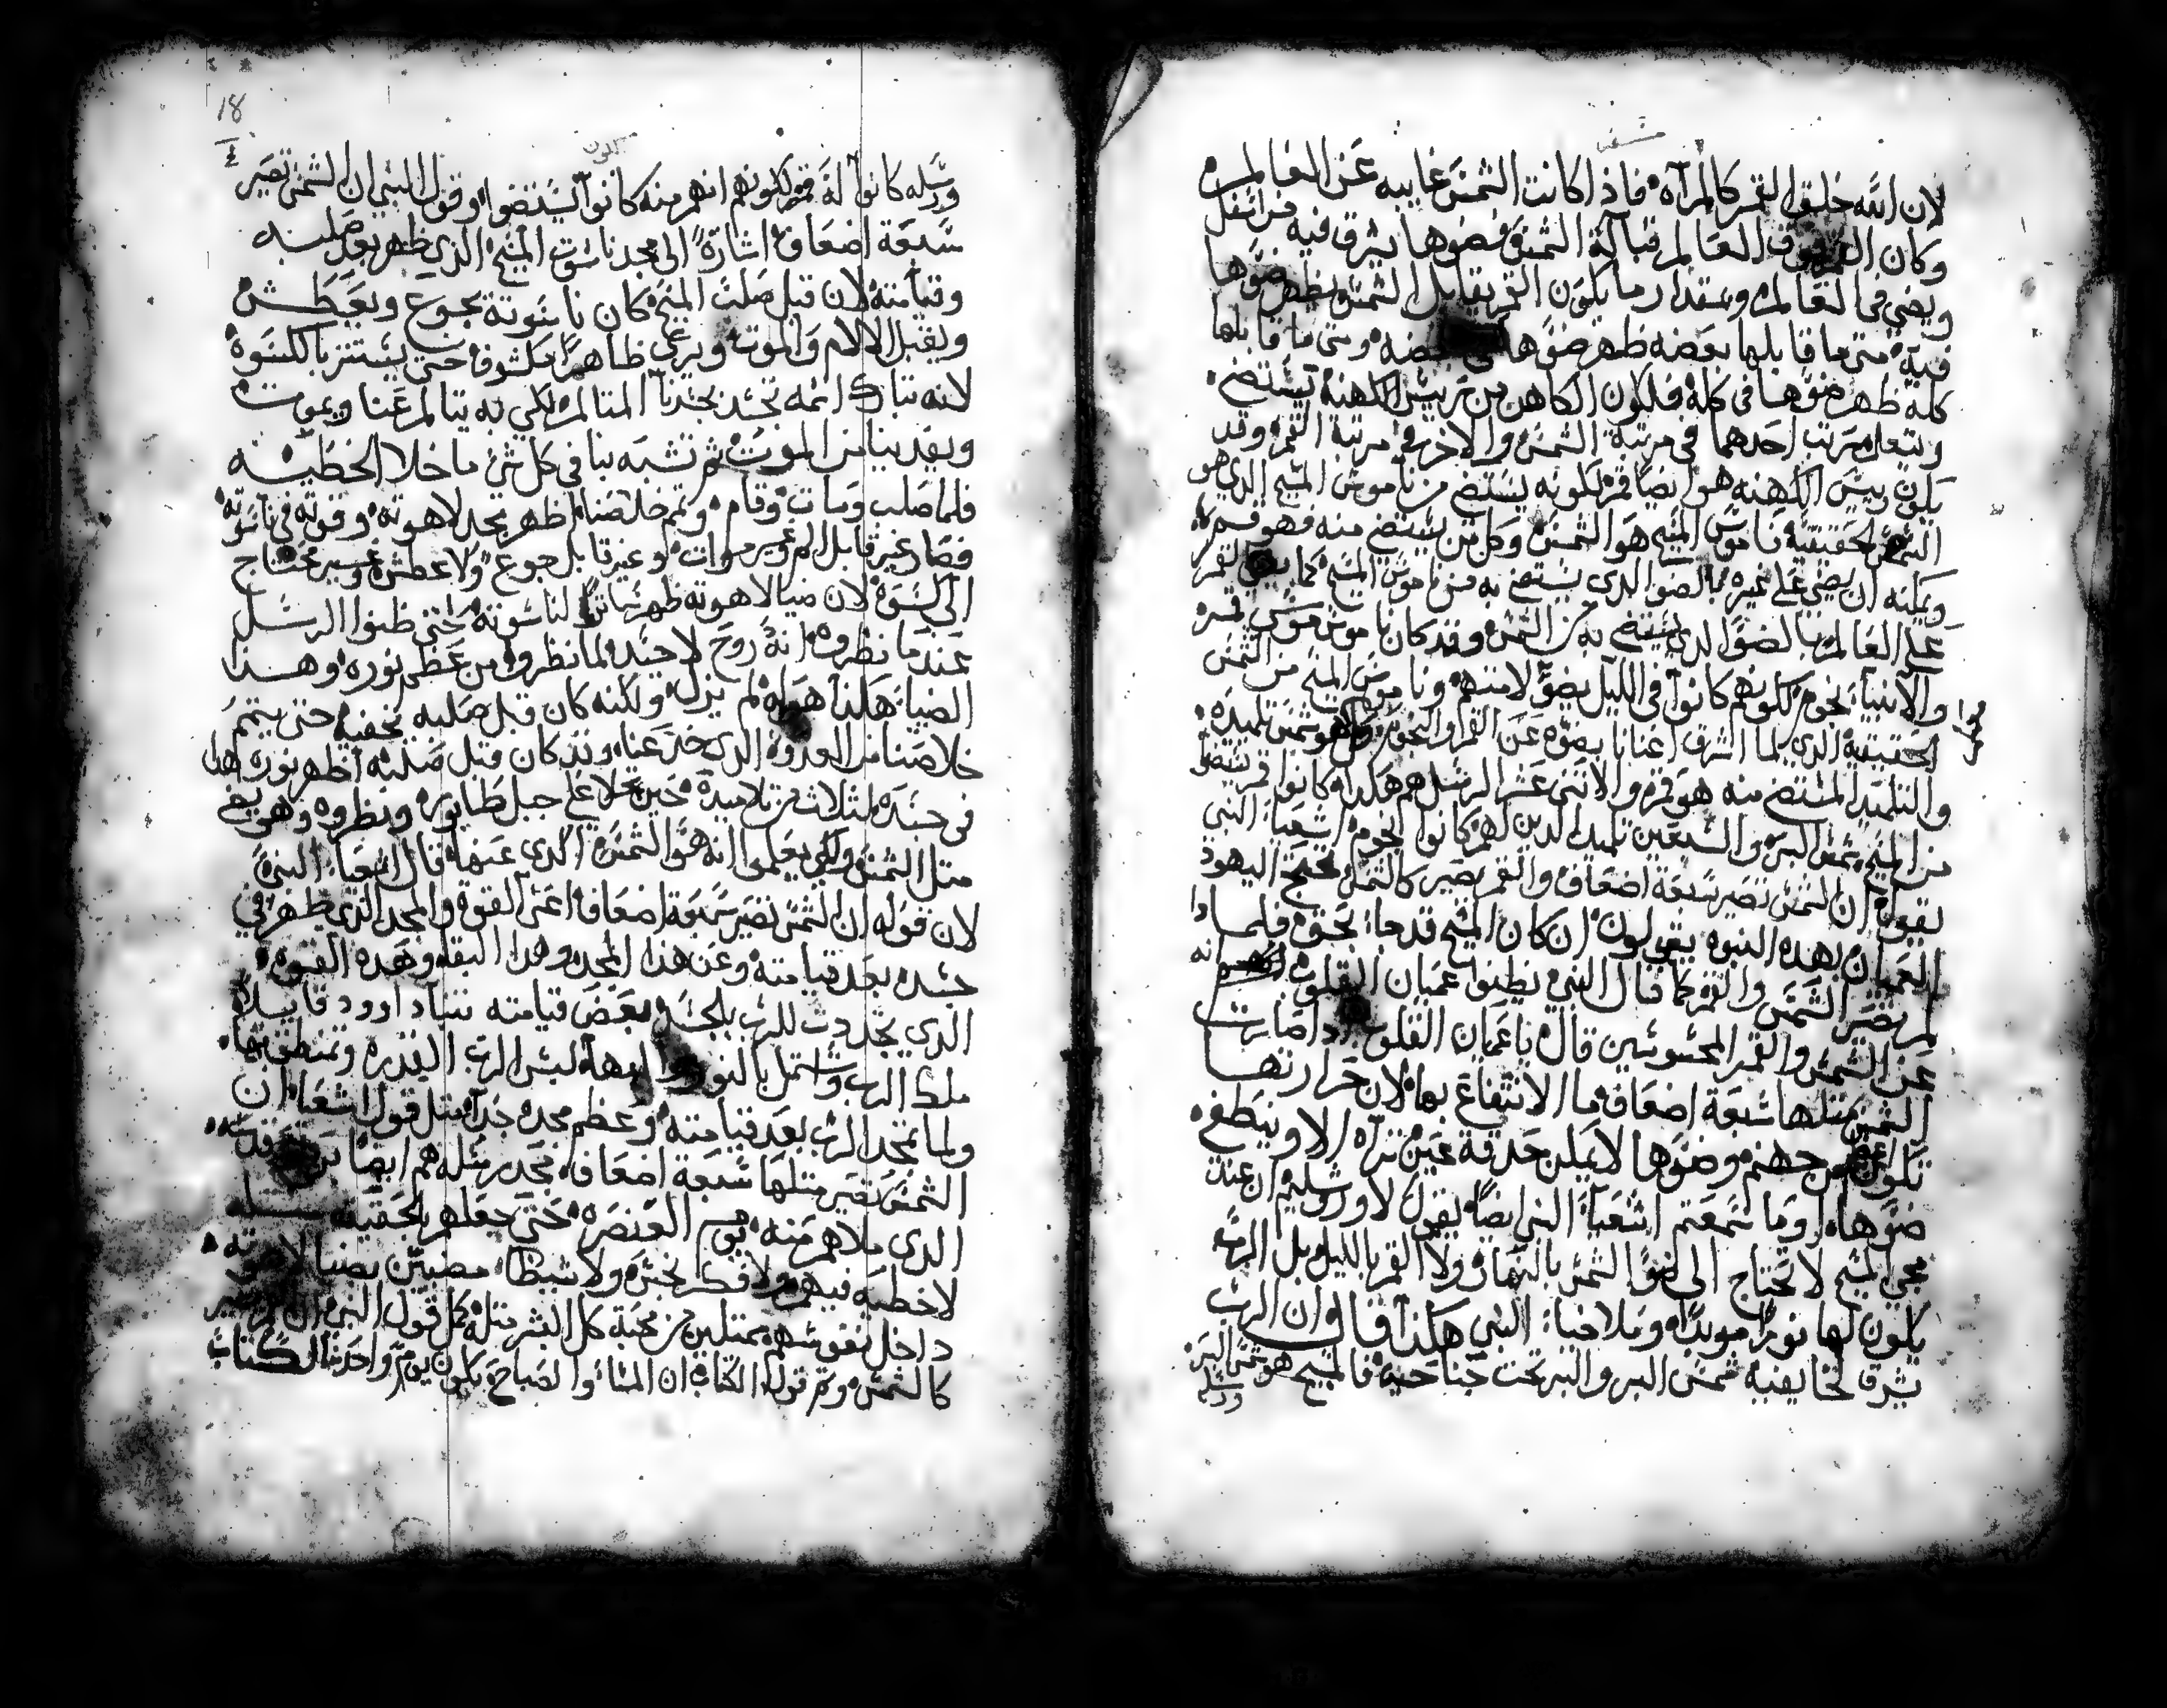 لان الله خلق القمر كالمرآه فاذا كانت الشمس غايبه عن العالم
وكان القمر فوق العالم قبالة الشمس فضوها يشرق فيه من اسفل
ويضي في العالم وبمقدار ما يكون القمر يقابل الشمس يظهر ضوها
فيه متى ما قابلها بعضه ظهر ضوها في بعضه ومتى ما قابلها
كله ظهر ضوها في كله فلكون الكاهن من رييس الكهنة يستضي
ويتعلم مرتب احدهما في مرتبة الشمس والاخر في مرتبة القمر وقد
يكون رييس الكهنه هو ايضا قمر لكونه يستضي من ناموس المسيح الدي هو
الشمس الحقيقية فناموس المسيح هو الشمس وكل من يستضي منه فهو قمر
ويمكنه ان يضي على غيره بالضوا الدي يستضي به من ناموس المسيح كما يضي القمر
على العالم بالضوا الدي يستضي به من الشمس وقد كان ناموس موسى قمر
والانبيا نجوم لكونهم كانوا في الليل يضوا لامتهم وناموس المسيح من الشمس
الحقيقية الدي لما اشرق اغنانا بضوه عن القمر والنجوم وهو شمس تلميده
والتلميد المستضي منه هو قمر والاتنى عشر الرسل هم هكدا كانوا قمر يستضوا
من المسيح شمس البر والسبعين تلميد الدين لهم كانوا نجوم اشعيا النبي
يقول ان الشمس تصير سبعة اضعاف والقمر يصير كالشمس يحتج اليهود
العميان بهده النبوه يقولون ان كان المسيح قد جا بحق فلمادا
لم تصير الشمس والقمر كما قال النبي يظنوا عميان القلوب انه
عن الشمس والقمر المحسوسين قال يا عميان القلوب ادا صارت
الشمس مثلها سبعة اضعاف ما الانتفاع بها لان حرارتها
تكون من جهنم وضوها لا يمكن حدقة عين تراه الا وينطفي
ضوها او ما سمعتم اشعيا النبي ايضا يقول لاورشليم ان عند
مجي المسيح لا تحتاج الى ضوا الشمس بالنهار ولا القمر بالليل بل الرب
يكون لها نورا موبدا وملاخيا النبي هكدا قال وان الرب
يشرق لخايفيه شمس البر والبر تحت جناحيه فالمسيح هو شمس البر
ورسله
18
ورسله كانوا له قمر لكونهم انهم منه كانوا يستضوا وقول النبي ان الشمس تصير
سبعة اضعاف اشارة الى مجد ناسوت المسيح الذي ظهر بعد صلبه
وقيامته لان قبل صلب المسيح كان ناسوته يجوع ويعطش
ويقبل الالام والموت ويرعى ظاهرا مكشوفا حتى يستتر بالكسوة
لانه تبارك اسمه تجسد بجسدنا المتالم لكي به يتالم عنا ويموت
ويفدينا من الموت ثم تشبه بنا في كل شي ما خلا الخطيه
فلما صلب ومات وقام وتم خلاصنا اظهر مجد لاهوته وقوته في ناسوته
فصار غير قابل الم وغير موات وغير قابل جوع ولا عطش وغير محتاج
الى كسوة لان ضيا لاهوته ظهر ساترا لناسوته حتى ظنوا الرسل
عندما نظروه انه روح لا جسد لما نظروه من عظم نوره وهدا
الضيا هكدا لم يزل ولكنه كان قبل صلبه يخفيه حتى يتمم
خلاصنا من العدو الدي خدعنا وقد كان قبل صلبه اظهر نوره هدا
في جسده لثلاث من تلاميده حين تجلا على جبل طابور ونظروه وهو يضي
متل الشمس ولكي يعلموا انه هو الشمس الدي عنها قال اشعيا النبي
لان قوله ان الشمس تصير سبعة اضعاف اعنى القوة والمجد الذي ظهر في
جسده بعد قيامته وعن هذا المجد وهدا البقا وهده القوة
الدي تجددت للرب بالجسد بعض قيامته تنبا داوود قايلا
ملك الرب واشتمل بالنور والبها لبس الرب القدره وتمنطق بها
ولما تمجد الرب بعد قيامته وعظم مجده جدا متل قول اشعيا ان
الشمس تصير متلها سبعة اضعاف مجد رسله هم ايضا
الدي ملاهم منه يوم العنصره حتى جعلهم بالحقيقه
لا خطيه فيهم ولا فكر نجس ولا شيطان مضيين بضيا لاهوته
داخل نفوسهم ممتلين من محبة كل البشر متله كمل قول النبي ان القمر يصير
كالشمس وتم قول الكتاب ان المسا والصباح يكون يوم واحد الكتاب